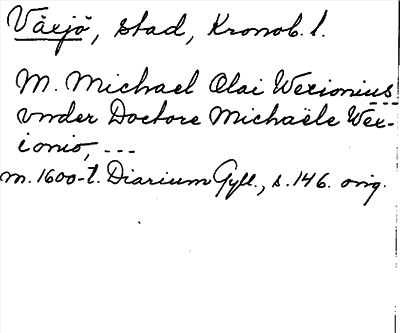 Växjö, stad, Kronob. l.
M. Michael Olai Wexionius
vnder Doctore Michaële Wex-
ionio, ---
m. 1600-t. Diarium Gyll., s. 146. orig.